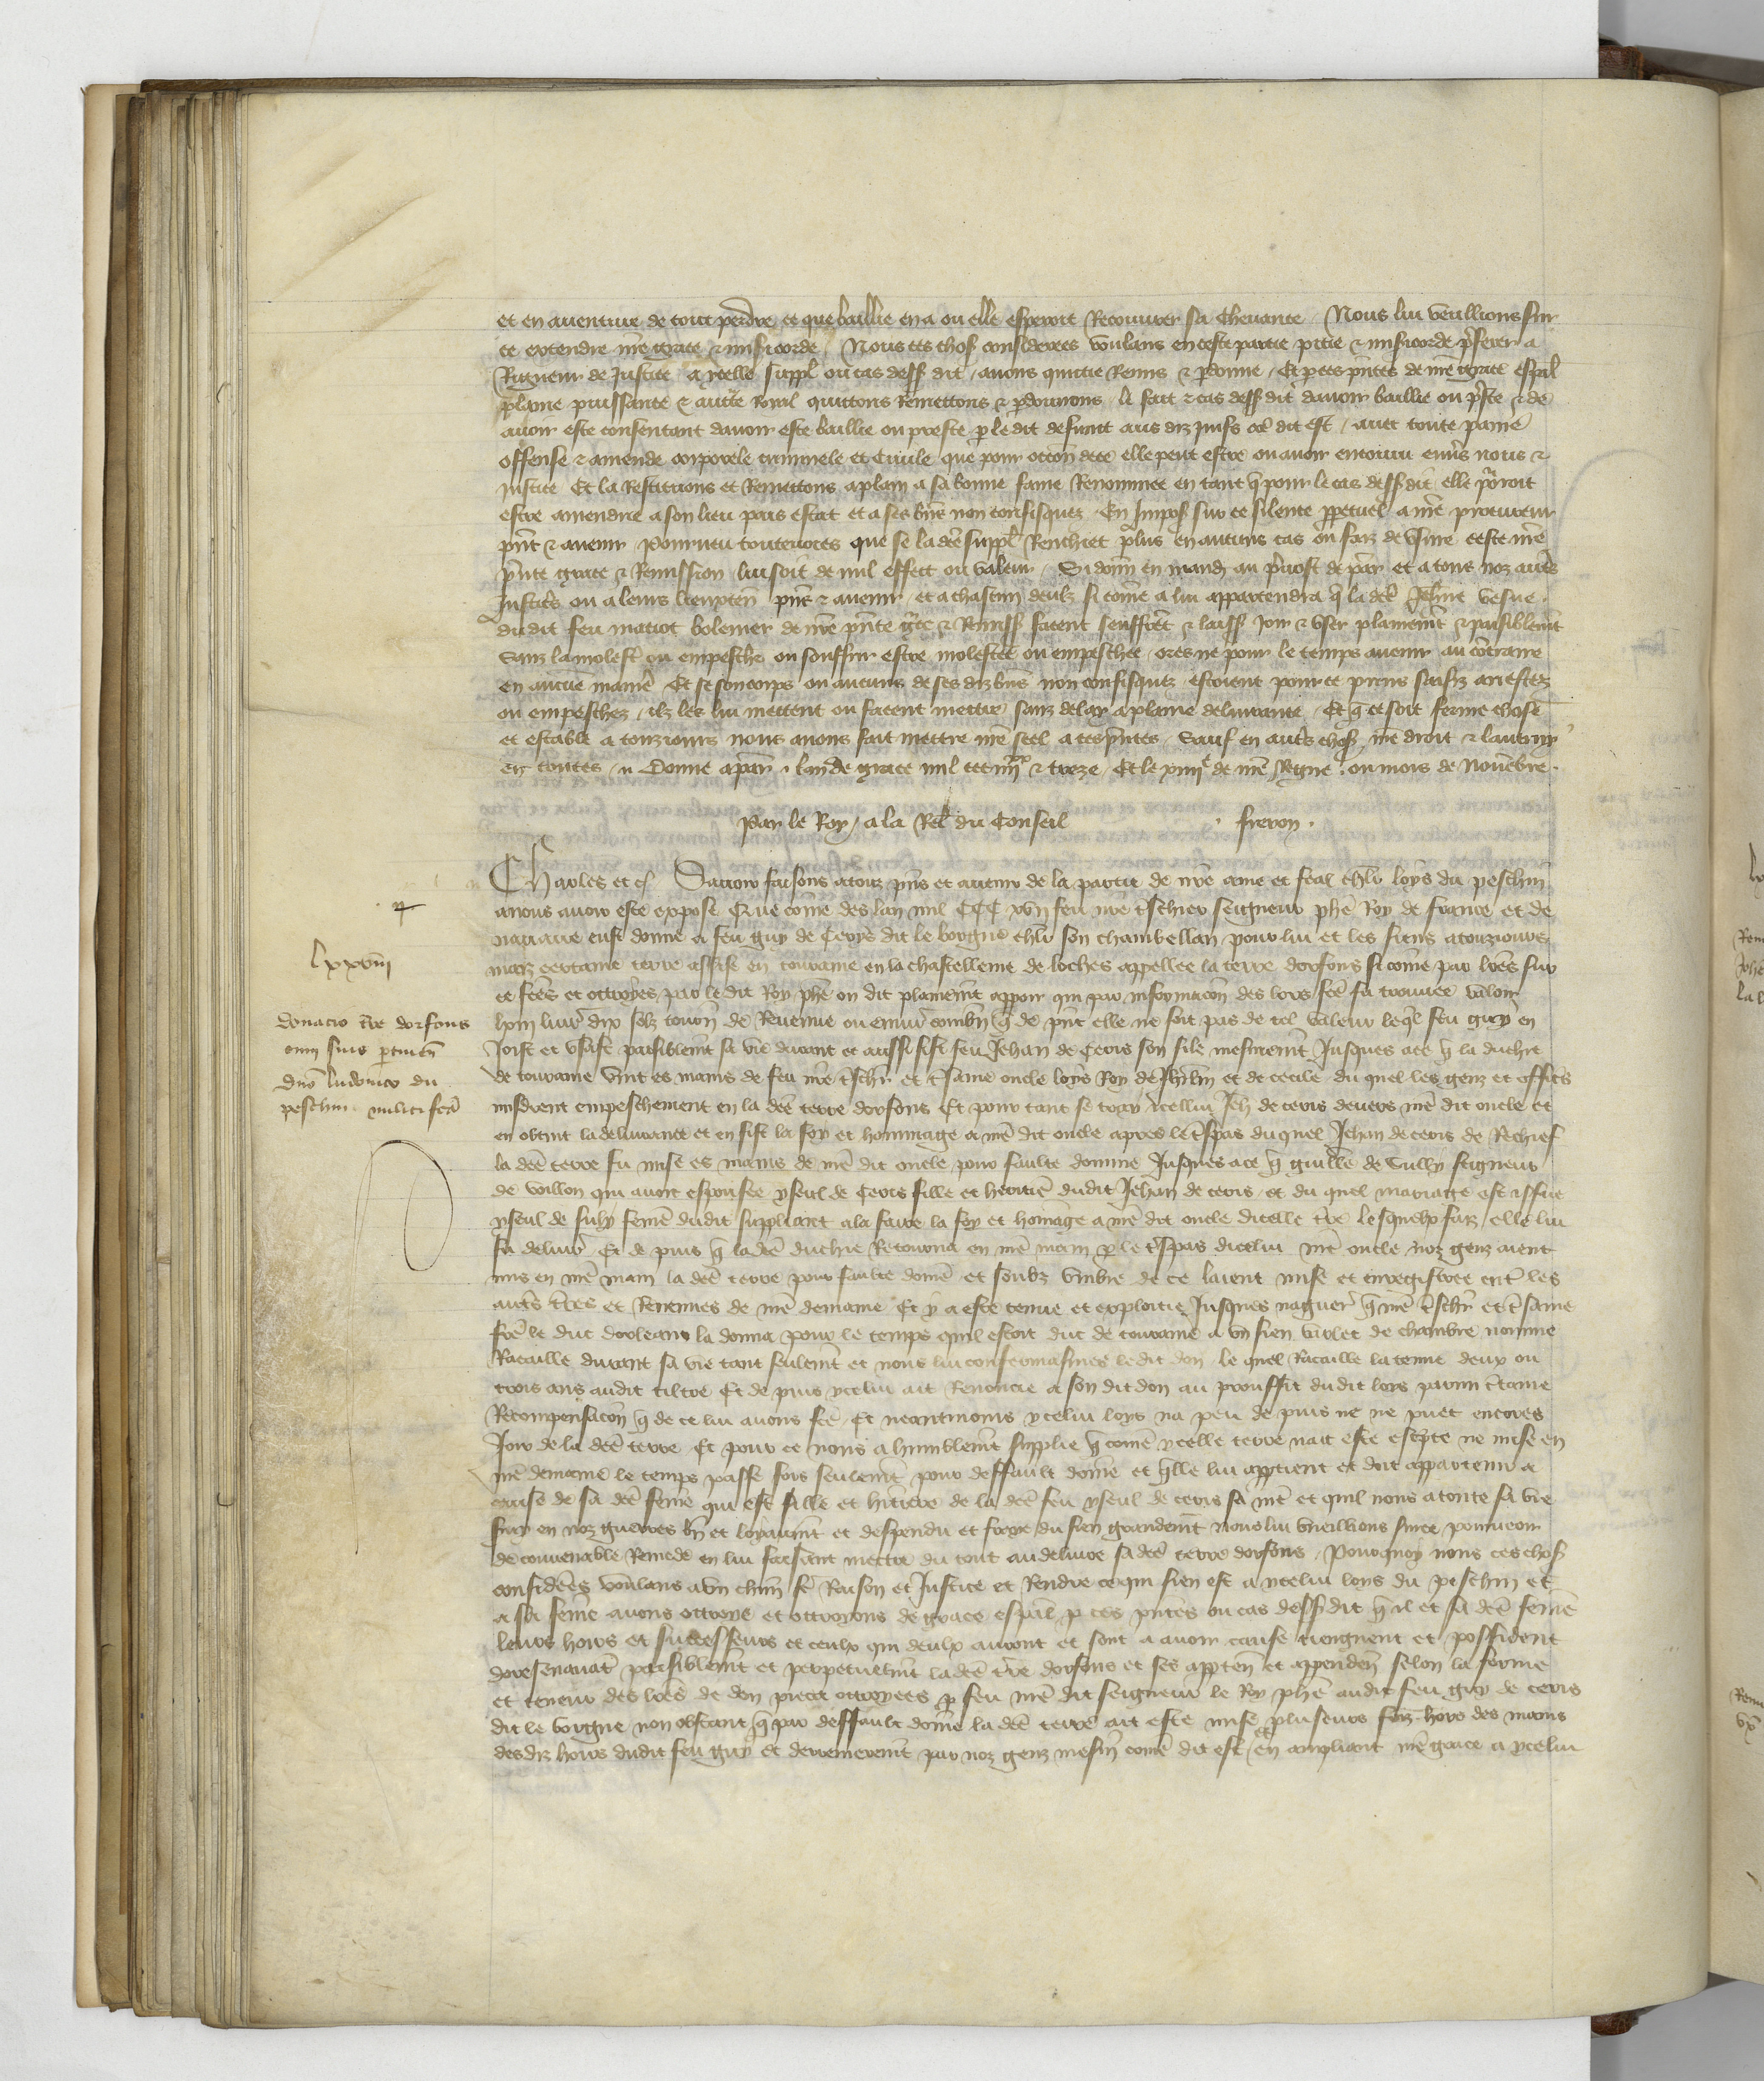 et en aventure de tout perdre ce que baillie en a ou elle esperoit Recouvrer sa Chevance. Nous lui veullions sur
ce extendre nre grace & misicorde. Nous ces chos considerees voulans en ceste partie pitie & misicorde pferer a
Rigueur de Justice a ycelle suppl ou cas dess dit, avons quictie Remis & pdonne, Et p ces pntes de nre grace espal
plaine puissance & aucte Royal quittons Remettons & pdonnons le fait & cas dess dit davoir baillie ou pste & de
avoir este consentant davoir este baillie ou preste p le dit defunct aus diz juifs coe dit est, avec toute paine
offense & amende corporele criminele et Civile que pour occon dece elle peut estre ou avoir encouru envs nous &
justice Et la Restituons et Remettons aplain a sa bonne fame Renommee en tant q pour le cas dess dit elle pourroit
estre amendrie a son lieu pais estat et a ses bns non confisquez. En Impos sur ce silence ppetuel a nre procureur
pnt & avenir pourveu toutevoies que se la dce suppl Renchiet plus en aucuns cas ou faiz de usure ceste nre
pnte grace & Remission lui soit de nul effect ou valeur. Si donn en mand au pvost de par et a tous noz autrs
Justicrs ou a leurs lieuxten pns & avenir et a chascun deulx si come a lui appartendra q la dce Jehne vesve
dudit feu maciot bolemer de nre pnte gce & Remiss facent seuffret & laiss Joir & user plainemt & paisiblemt
Sanz la molest ou empesche ou souffrir estre molestee ou empeschee ores ne pour le temps avenir au contraire
en aucune maniere Et se son corps ou aucuns de ses diz bns non confisquez estoient pour ce prins saisiz arrestez
ou empeschez, ilz les lui mettent ou facent mettre sanz delay a plaine delivrance. Et q ce soit ferme chose
et estable a touzjours nous avons fait mettre nre seel a ces pntes. Sauf en autrs chos nre droit & lautruy
en toutes. Donne a par. lan de grace mil ccc iiiixx & treze, Et le xiiiie de nre Regne. ou mois de Novebre.
Par le Roy, a la Rel du Conseil . freron .
Charles etc Savoir faisons a touz pns et avenir de la partie de nre ame et feal chlr loys du peschin
a nous avoir este expose Que come des lan mil CCC xvii feu nre tschier seigneur phe Roy de france et de
navarre eust donne a feu guy de Ceris dit le borgne chlr son chambellan pour lui et les siens a touzjours
maiz certaine terre assise en touraine en la chastellenie de loches appellee la terre dorfons si come par lres sur
ce fces et octroyees par le dit Roy phe on dit plainemt apparoir qui par informacon des lors fce fu trouvee valoir
lxvii livr dix solz tourn de Revenue ou environ combn q de pnt elle ne soit pas de tel valeur leql feu guy en
Joist et usast paisiblemt sa vie durant et aussi fist feu Jehan de Ceris son filz mesmemt Jusques ace q la duchie
de touraine vint es mains de feu nre tschr et tsame oncle loys Roy de Jhrlm et de cecile du quel les genz et officrs
misdrent empeschement en la dce terre dorfons Et pour tant se tray ycellui Jeh de ceris devers nre dit oncle et
en obtint la delivrance et en fist la foy et hommage a nre dit oncle apres le tspas du quel Jehan de ceris de Rechief
la dce terre fu mise es mains de nre dit oncle pour faulte domme Jusques ace q guille de Cully seigneur
de voillon qui avoit espousee yseul de Ceris fille et heritie dudit Jehan de ceris et du quel mariage est issue
yseul de suly feme dudit suppliant ala faire la foy et homage a nre dit oncle dicelle tre lesquelx faiz elle lui
fu delivr Et de puis q la dce duchie Retourna en nre main p le tspas dicelui nre oncle noz genz aient
mis en nre main la dce terre pour faulte dome et soubz umbre de ce laient mise et enregistree ent les
autrs tres et Revenues de nre demaine Et y a este tenue et exploitie Jusques naguer q nre tschr et tsame
fre le duc dorleans la donna pour le temps quil estoit duc de touraine a un sien varlet de chambre nomme
Racaille durant sa vie tant seulemt et nous lui confermasmes le dit don le quel Racaille la tenue deux ou
trois ans audit tiltre Et de puis ycelui ait Renoncie a son dit don au prouffit dudit loys parmi ctaine
Recompensacon q de ce lui avons fce. Et neantmoins ycelui loys na peu de puis ne ne puet encores
Joir de la dce terre Et pour ce nous a humblemt supplie q come ycelle terre nait este escpte ne mise en
nre demaine le temps passe fors seulemt pour deffault dome et qlle lui apptient et doit appartenir a
cause de sa dce feme qui est fille et hitiere de la dce feu yseul de ceris sa me et quil nous a toute sa vie
suy en noz guerres bn et loyaumt et despendu et fraye du sien grandemt nous lui vueillions sur ce pourveoir
de convenable Remede en lui faisant mettre du tout au delivre sa dce terre dorfons. Pourquoy nous ces chos
considees voulans a un chun fe Raison et Justice et Rendre ce qui sien est a ycelui loys du peschin et
a sa feme avons octroye et octroyons de grace espal p ces pntes ou cas dessdit q il et sa dce feme
leurs hoirs et successeurs et ceulx qui deulx auront et sont a avoir cause tiengnent et possident
doresenavat paisiblemt et perpetuelmt la dce tre dorfons et ses appten et appenden selon la forme
et teneur des lres de don pieca octroyees p feu nre dit seigneur le Roy phe audit feu guy de ceris
dit le borgne non obstant q par deffault dome la dce terre ait este mise p pluseurs foiz hors des mains
desdiz hoirs dudit feu guy et derrenieremt par noz genz mesm come dit est, en ampliant nre grace a ycelui
lxxviii
donacio tre dorfons
cum suis ptinen
dno ludovico du
peschin militi fca